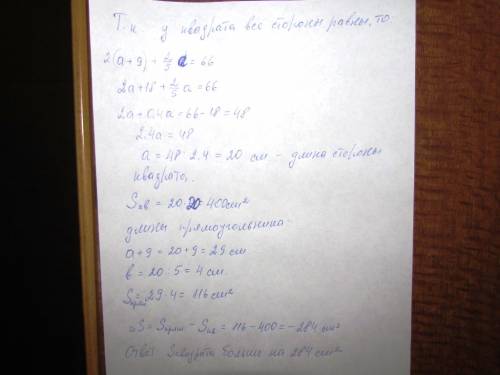 Т.к у квадрата все стороны равны, то
2(a+9) + 2/5 a = 66
2a+18 + 2/5 a = 66
2a+0.4a = 66-18 = 48
2.4a = 48
a = 48 : 2.4 = 20 см - длина стороны
квадрата.
Sкв = 20·20 = 400см²
длины прямоугольника
a+9 = 20+9 = 29 см
в = 20 : 5 = 4 см.
Sпрям = 29·4 = 116 см²
ΔS = Sпрям - Sкв = 116 - 400 = -284 см²
Ответ: Sквадрата больше на 284 см²